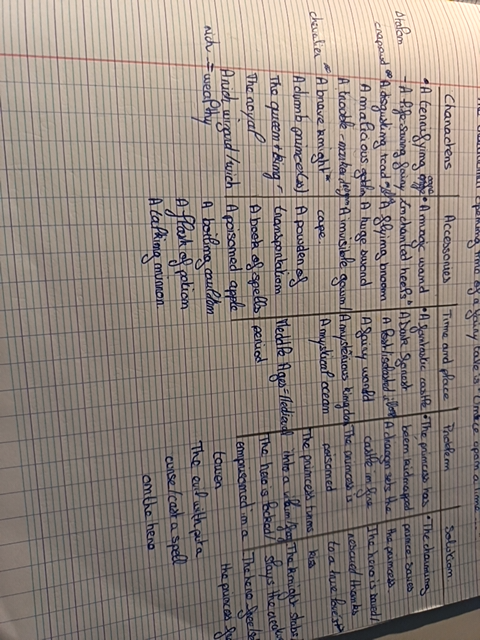 opening time of a fairy tale is: Once upon a time...
Characters
Accessories
Time and place
Problem
Solution
• A terrifying ogre
- A life-saving fairy
crapaud
A disgusting toad
A malicious
A brave knight
chevalier
A dumb prince(ss)
The queen + king
The royal
A wizard / wich
rich = wealthy
• A magic wand
Enchanted heels
A flying broom
A huge sword
A invisible gown /
cape.
A powder of
transportation
A book of spells
A poisoned apple
A boiling cauldron
A flask of potion
A talking mirror
• A fantastic castle
A dark forest
A fairy world
A mysterious kingdom
A mystical ocean
Middle Ages = Medieval
period
• The princess has
been kidnapped
A dragon sets the
castle in fire
The princess is
poisoned
The princess turns
into a villain /
The hero is locked /
emprisoned in a
tower
The evil with put a
curse / cast a spell
on the hero
• The charming
prince saves
the princess.
The hero is saved /
rescued thanks
to a true love's
kiss
The knight
slays the
The hero
the princess